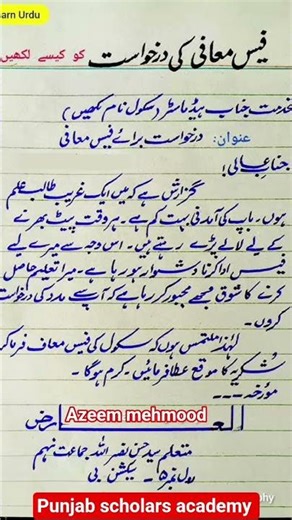 arn Urdu
فیس معافی کی درخواست کو کیسے لکھیں
خدمت جناب ہیڈ ماسٹر (سکول نام لکھیں)
عنوان: درخواست برائے فیس معافی
جناب عالی!
گزارش ہے کہ میں ایک غریب طالب علم
ہوں۔ باپ کی آمدنی بہت کم ہے۔ ہر وقت پیٹ بھرنے
کے لیے لالے پڑے رہتے ہیں۔ اس وجہ سے میرے لیے
فیس ادا کرنا دشوار ہو رہا ہے۔ میرا تعلیم حاصل
کرنے کا شوق مجھے مجبور کر رہا ہے کہ آپ سے مدد کی درخواست
کروں۔
لہٰذا ملتمس ہوں کہ سکول کی فیس معاف فرما کر
شکریہ کا موقع عطا فرمائیں۔ کرم ہوگا۔
مورخہ ---
العارض
Azeem mehmood
متعلم سید حسن نصر اللہ جماعت نہم
رول نمبر ۵ - سیکشن بی
phy
Punjab scholars academy